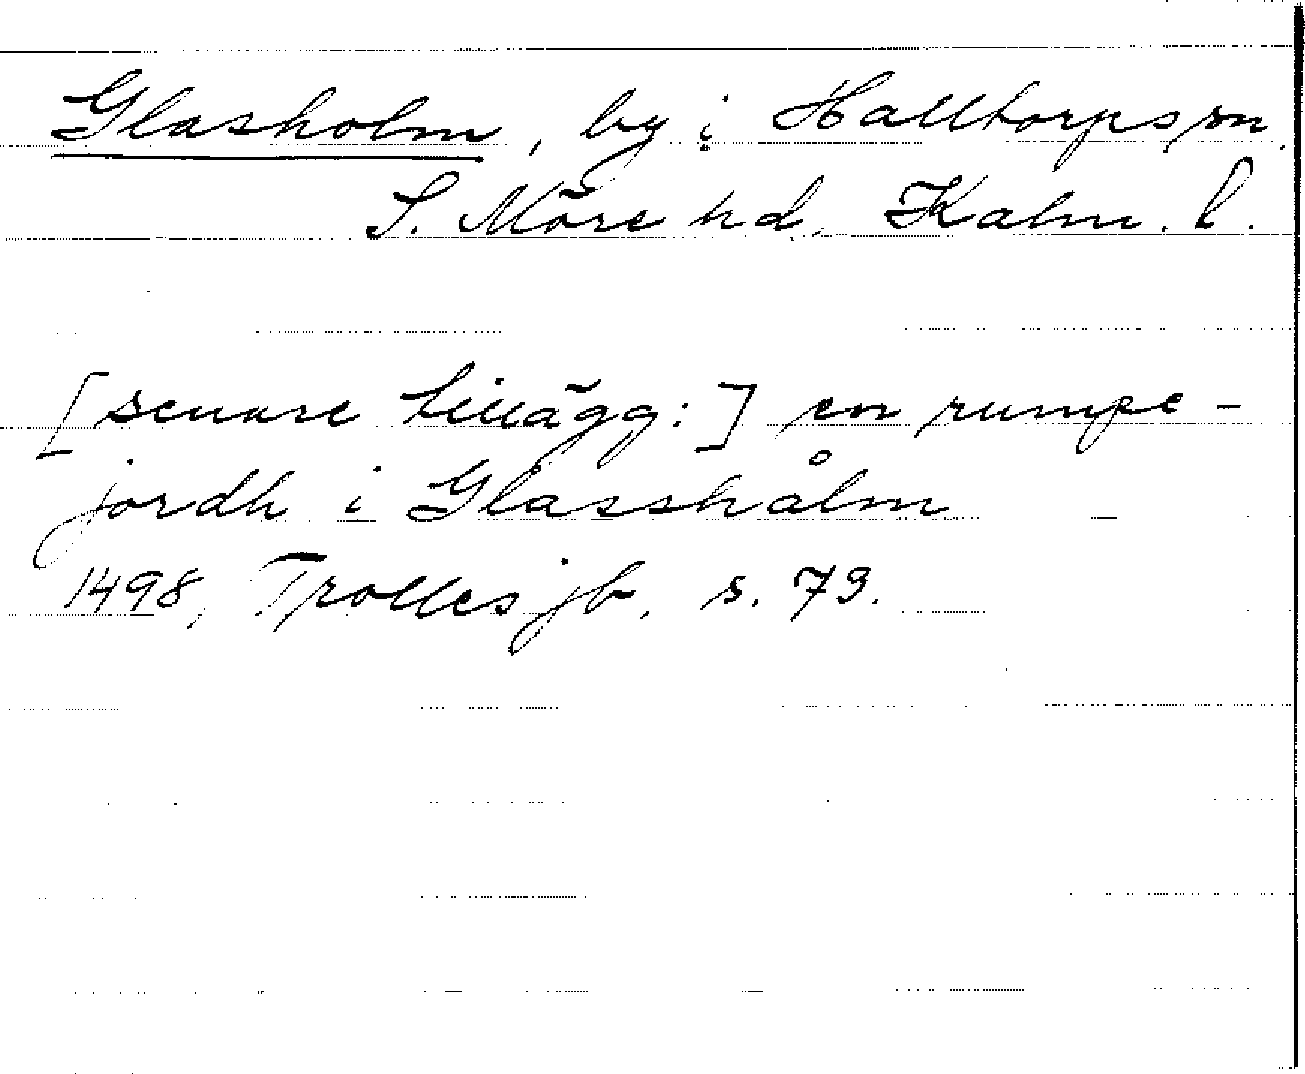 Glasholm, by i Halltorps sn.
S. Möre hd, Kalm. l.
[senare tillägg:] en rumpe-
jordh i Glasshålm
1498, Trolles jb, s. 79.